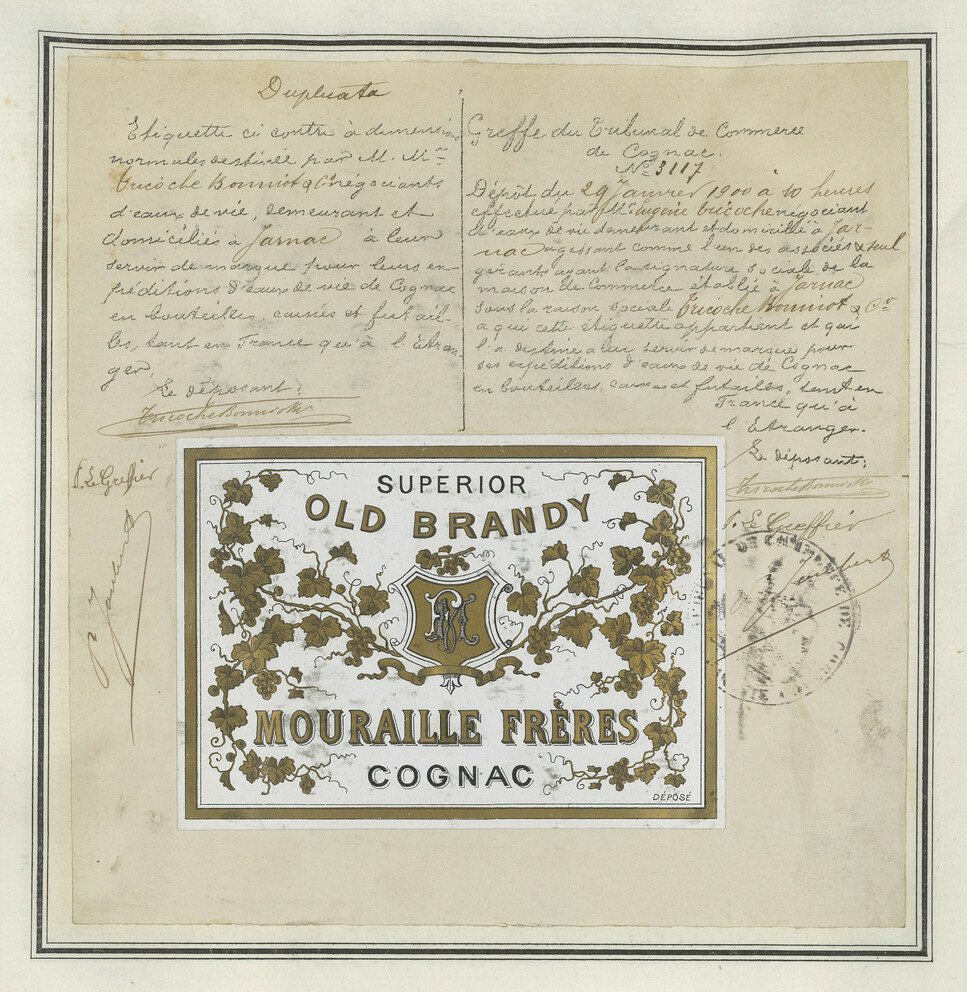 Duplicata
Etiquette ci contre à dimensions
normales destinée par M. M.rs
Tricoche Bonniot & Cie négociants
d'eaux de vie, demeurant et
domiciliés à Jarnac à leur
servir de marque pour leurs ex-
péditions d'eaux de vie de Cognac
en bouteilles, caisses et futail-
les, tant en France qu'à l'Etran-
ger.
Le déposant:
Tricoche Bonniot &
P. Le Greffier
Greffe du Tribunal de Commerce
de Cognac.
No 3117
Dépôt du 29 Janvier 1900 à 10 heures
effectué par Mr. Eugène Tricoche négociant
d'eaux de vie demeurant et domicilié à Jar-
nac agissant comme l'un des associés & seul
gerants ayant la signature sociale de la
maison de Commerce établie à Jarnac
sous la raison sociale Tricoche Bonniot & Cie
a qui cette étiquette appartient et qui
l'a destine a lui servir de marque pour
ses expéditions d'eaux de vie de Cognac
en bouteilles, caisses et futailles, tant en
France qu'à
l'Etranger.
Le déposant:
Tricoche Bonniot &
P. Le Greffier
SUPERIOR
OLD BRANDY
MOURAILLE FRÈRES
COGNAC
DÉPOSÉ